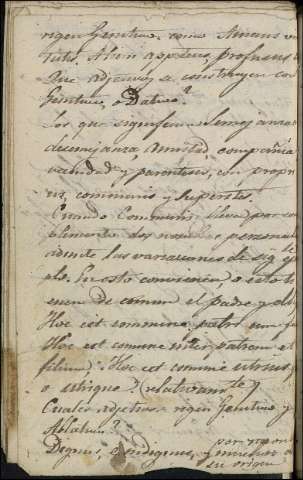 rigen Genitivo, como Amans vir
tutis. Alieni appetens, profusus
Que adjetivos se construyen con
Genitivo, o Dativo?
Los que significan Semejanza
desemejanza, Amistad, compañia
vecindad y parentesco, con propri
us, communis y superstes.
Quando Communis lleva por
dos nombres personales
admite las variaciones de sig
plo. En esto convienen, o esto ti
enen de comun el padre y el
Hoc est commune patri cum f
Hoc est commune inter patrem et
filium. Hoc est commune utrius
o utrique
Cuales adjetivos rigen Genitivo y
Ablativo?
Dignus, indignus, y muchos
por razon
su origen